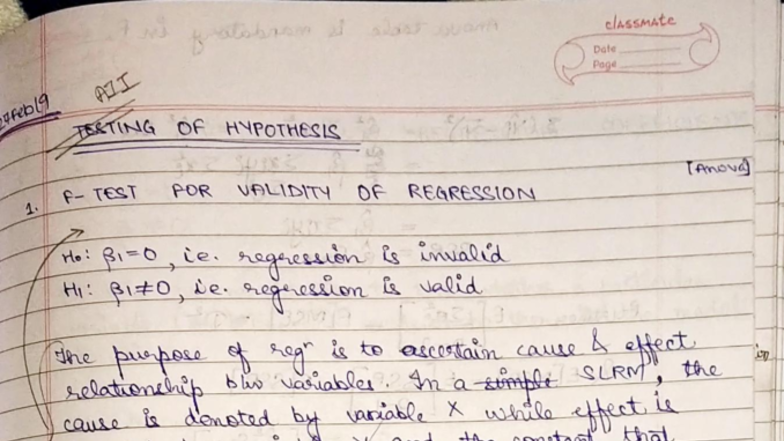 classmate
Date
Page
TESTING OF HYPOTHESIS
[Anova]
1. F- TEST FOR VALIDITY OF REGRESSION
H₀: β₁=0, i.e. regression is invalid
H₁: β₁≠0, i.e. regression is valid
The purpose of regⁿ is to ascertain cause & effect
relationship b/w variables. In a simple SLRM, the
cause is denoted by variable X while effect is
and the constant that